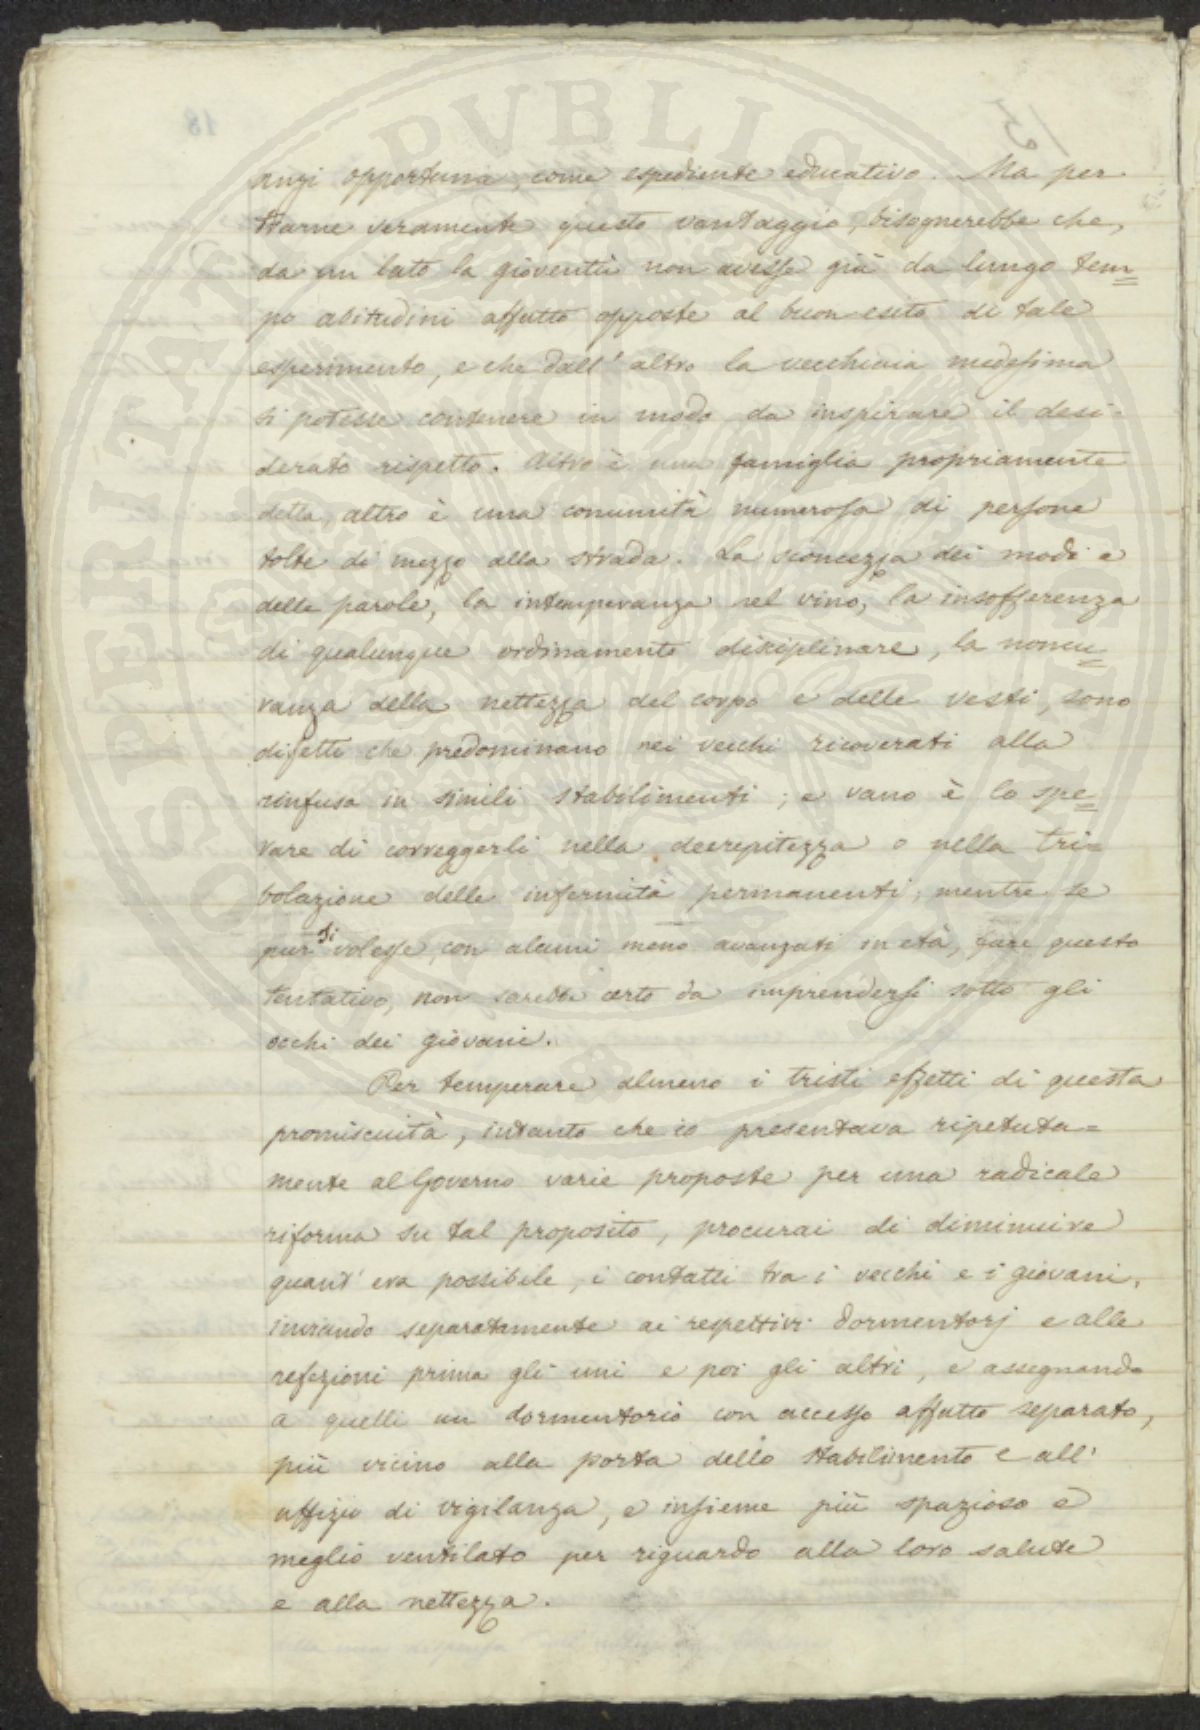 anzi opportuna, come espediente educativo. Ma per
trarne veramente questo vantaggio, bisognerebbe che,
da un lato la gioventù non avesse già da lungo tem=
po abitudini affatto opposte al buon esito di tale
esperimento, e che dall'altro la vecchiaia medesima
si potesse contenere in modo da inspirare il desi-
derato rispetto. Altro è una famiglia propriamente
detta, altro è una comunità numerosa di persone
tolte di mezzo alla strada. La sconcezza dei modi e
delle parole, la intemperanza nel vino, la insofferenza
di qualunque ordinamento disciplinare, la noncu=
ranza della nettezza del corpo e delle vesti, sono
difetti che predominano nei vecchi ricoverati alla
rinfusa in simili stabilimenti; e vano è lo spe=
rare di correggerli nella decrepitezza o nella tri=
bolazione delle infermità permanenti; mentre se
pur si volesse, con alcuni meno avanzati in età, fare questo
tentativo, non sarebbe certo da imprendersi sotto gli
occhi dei giovani.
Per temperare almeno i tristi effetti di questa
promiscuità, intanto che io presentava ripetuta=
mente al Governo varie proposte per una radicale
riforma su tal proposito, procurai di diminuire
quant'era possibile, i contatti tra i vecchi e i giovani,
inviando separatamente ai respettivi dormentorj e alle
refezioni prima gli uni e poi gli altri, e assegnando
a quelli un dormentorio con accesso affatto separato,
più vicino alla porta dello stabilimento e all'
uffizio di vigilanza, e insieme più spazioso e
meglio ventilato per riguardo alla loro salute
e alla nettezza.
PROSPERITATI PVBLICAE AVGENDAE